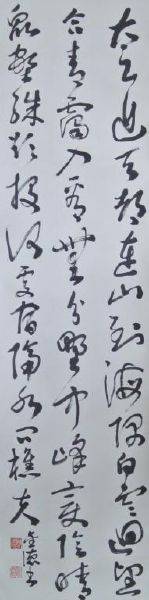 太乙近天都連山到海隅白雲迴望
合青靄入看無分野中峰變陰晴
眾壑殊欲投處宿隔水問樵夫